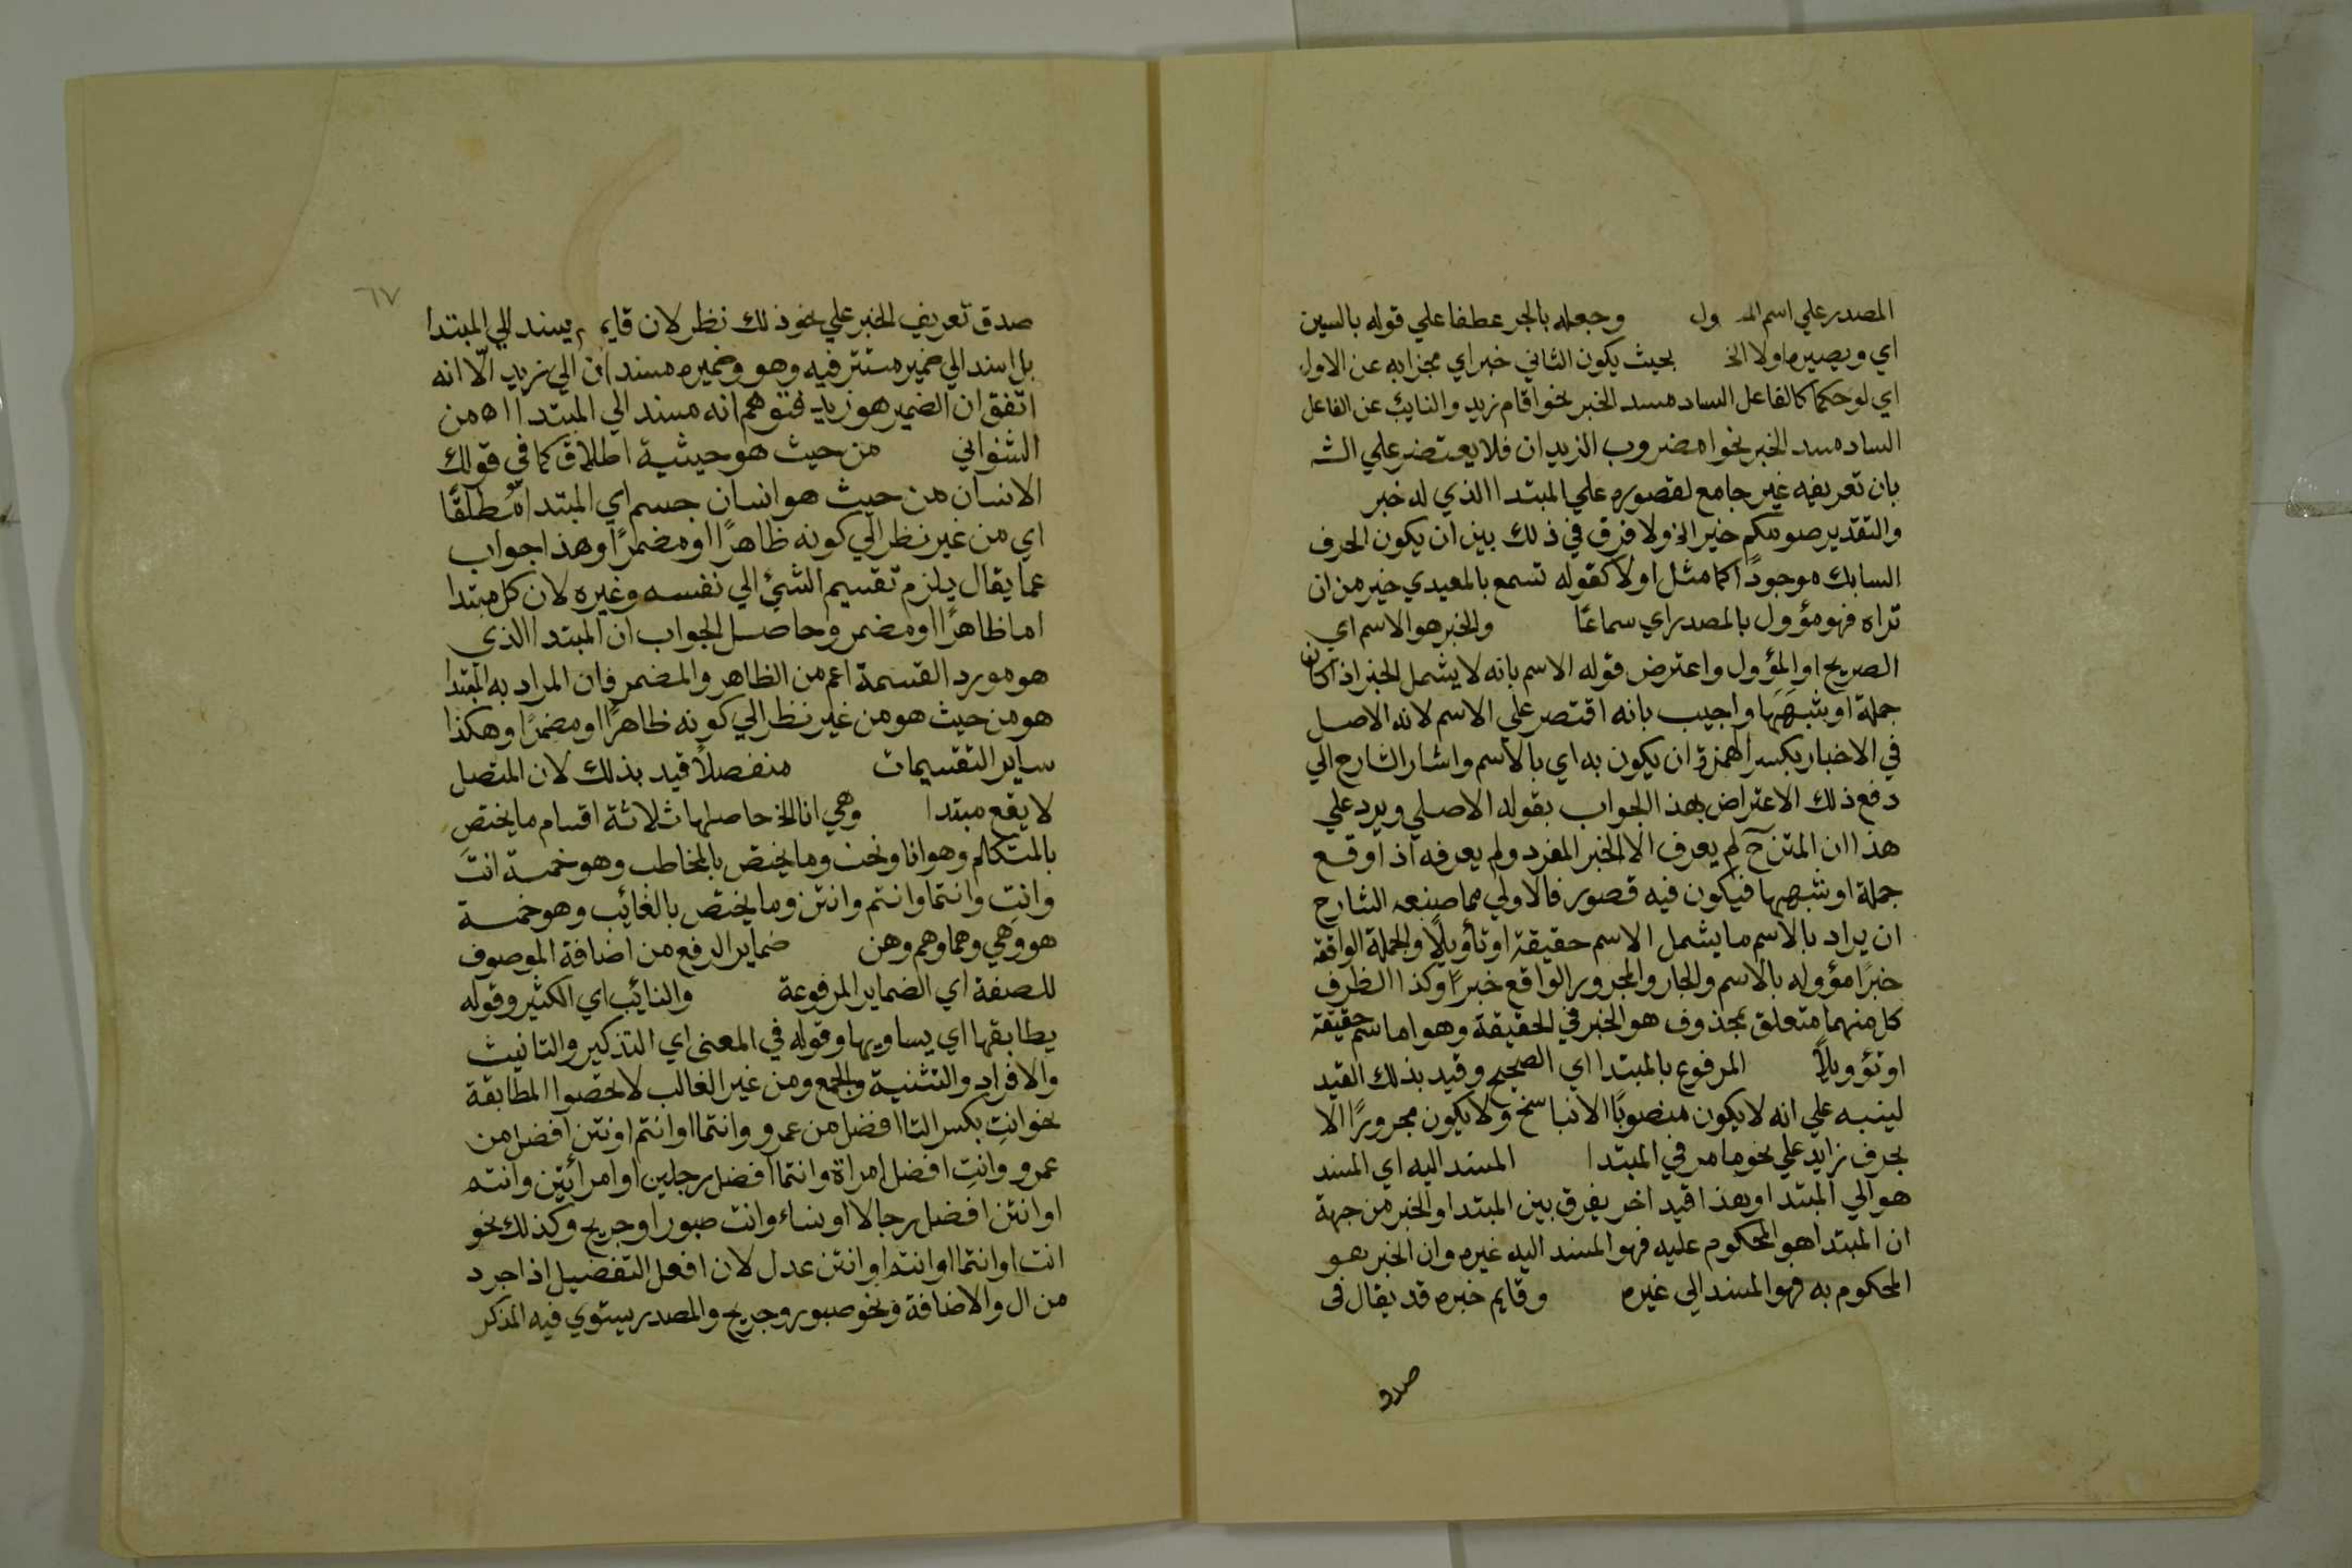 المصدر علي اسم الم ول وجعله بالجر عطفا علي قوله بالسين
اي ويصيرهما ولا الخ بحيث يكون الثاني خبر اي مجزا به عن الاول
اي لو حكما كالفاعل الساد مسد الخبر نحو اقام زيد والنايب عن الفاعل
الساد مسد الخبر نحو امضروب الزيدان فلا يعترض علي الش
بان تعريفه غير جامع لقصوره علي المبتدا الذي له خبر
والتقدير صومكم خير الخ ولا فرق في ذلك بين ان يكون الحرف
السابك موجودًا كما مثل اولا كقوله تسمع بالمعيدي خير من ان
تراه فهو مؤول بالمصدر اي سماعًا والخبر هو الاسم اي
الصريح او المؤول واعترض قوله الاسم بانه لا يشمل الخبر اذا كان
جملة او شبهها واجيب بانه اقتصر علي الاسم لانه الاصل
في الاخبار بكسر الهمزة ان يكون به اي بالاسم واشار الشارح الي
دفع ذلك الاعتراض بهذا الجواب بقوله الاصلي ويرد علي
هذا ان المتن ح لم يعرف الا الخبر المفرد ولم يعرفه اذا وقع
جملة او شبهها فيكون فيه قصور فالاولي مما صنعه الشارح
ان يراد بالاسم ما يشمل الاسم حقيقة او تأويلًا والجملة الواقعة
خبرًا مؤوله بالاسم والجار والمجرور الواقع خبرًا وكذا الظرف
كل منهما متعلق بمحذوف هو الخبر في الحقيقة وهو اما اسم حقيقة
او تؤويلًا المرفوع بالمبتدا اي الصحيح وقيد بذلك القيد
لينبه علي انه لا يكون منصوبًا الا بناسخ ولا يكون مجرورًا الا
بحرف زايد علي نحو ما مر في المبتدا المسند اليه اي المسند
هو الي المبتدا وهذا قيد اخر يفرق بين المبتدا والخبر من جهة
ان المبتدا هو المحكوم عليه فهو المسند اليه غيره وان الخبر هو
المحكوم به فهو المسند الي غيره وقايم خبره قد يقال في
صدق
٦٧
صدق تعريف الخبر علي نحو ذلك نظر لان قايم يسند الي المبتدا
بل اسند الي ضمير مستتر فيه وهو وضميره مسندان الي زيد الّا انه
اتفق ان الضمير هو زيد فتوهم انه مسند الي المبتدا اه من
الشنواني من حيث هو حيثية اطلاق كما في قولك
الانسان من حيث هو انسان جسم اي المبتدا مُطلقًا
اي من غير نظر الي كونه ظاهرًا او مضمرًا وهذا جواب
عما يقال يلزم تقسيم الشئ الي نفسه وغيره لان كل مبتدا
اما ظاهرًا او مضمر وحاصل الجواب ان المبتدا الذي
هو مورد القسمة اعم من الظاهر والمضمر فان المراد به المبتدا
هو من حيث هو من غير نظر الي كونه ظاهرًا او مضمرًا وهكذا
ساير التقسيمات منفصلًا قيد بذلك لان المتصل
لا يقع مبتدا وهي انا الخ حاصلها ثلاثة اقسام ما يختص
بالمتكلم وهو انا ونحن وما يختص بالمخاطب وهو خمسة انتَ
وانتِ وانتما وانتم وانتن وما يختص بالغائب وهو خمسة
هو وهي وهما وهم وهن ضماير الرفع من اضافة الموصوف
للصفة اي الضماير المرفوعة والنائب اي الكثير وقوله
يطابقها اي يساويها وقوله في المعني اي التذكير والتانيث
والافراد والتثنية والجمع ومن غير الغالب المطابقة
نحو انتِ بكسر التا افضل من عمرو وانتما او انتم اونتن افضل من
عمرو وانتِ افضل امراة وانتما افضل رجلين او امرأتين وانتم
او انتن افضل رجالا او نساء وانت صبور او جريح وكذلك نحو
انت او انتما او انتم او انتن عدل لان افعل التفضيل اذا جرد
من ال والاضافة ونحو صبور وجريح والمصدر يستوي فيه المذكر